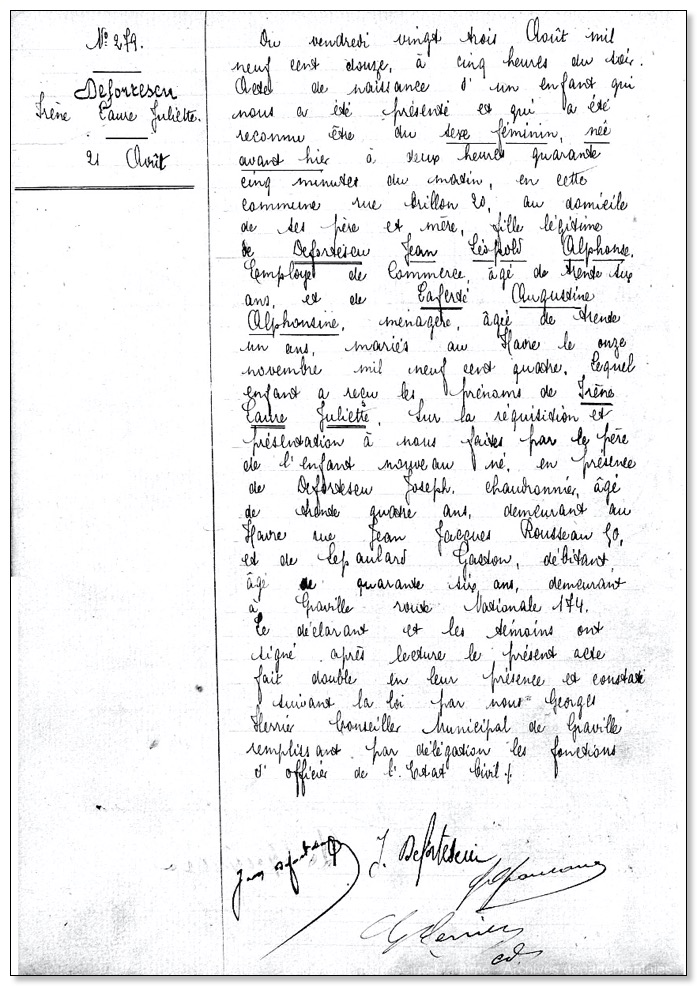 N° 279.
Defortescu
Irène Laure Juliette.
21 Août
Du vendredi vingt trois Août mil
neuf cent douze, à cinq heures du soir.
Acte de naissance d'un enfant qui
nous a été présenté et qui a été
reconnu être du sexe féminin, née
avant hier à deux heures quarante
cinq minutes du matin, en cette
commune rue Brillon 20, au domicile
de ses père et mère, fille légitime
de Defortescu Jean Léopold Alphonse.
Employé de Commerce âgé de trente six
ans, et de Laferté Augustine
Alphonsine, ménagère, âgée de trente
un ans, mariés au Havre le onze
novembre mil neuf cent quatre. Lequel
enfant a reçu les prénoms de Irène
Laure Juliette. Sur la réquisition et
présentation à nous faites par le père
de l'enfant nouveau né. en présence
de Defortescu Joseph. chaudronnier, âgé
de trente quatre ans, demeurant au
Havre rue Jean Jacques Rousseau 50,
et de Lepaulard Gaston, débitant,
âgé de quarante six ans, demeurant
à Graville route Nationale 174.
Le déclarant et les témoins ont
signé après lecture le présent acte
fait double en leur présence et constaté
suivant la loi par nous Georges
Herrier Conseiller Municipal de Graville
remplissant par délégation les fonctions
d'officier de l'Etat Civil ./.
J. Defortescu